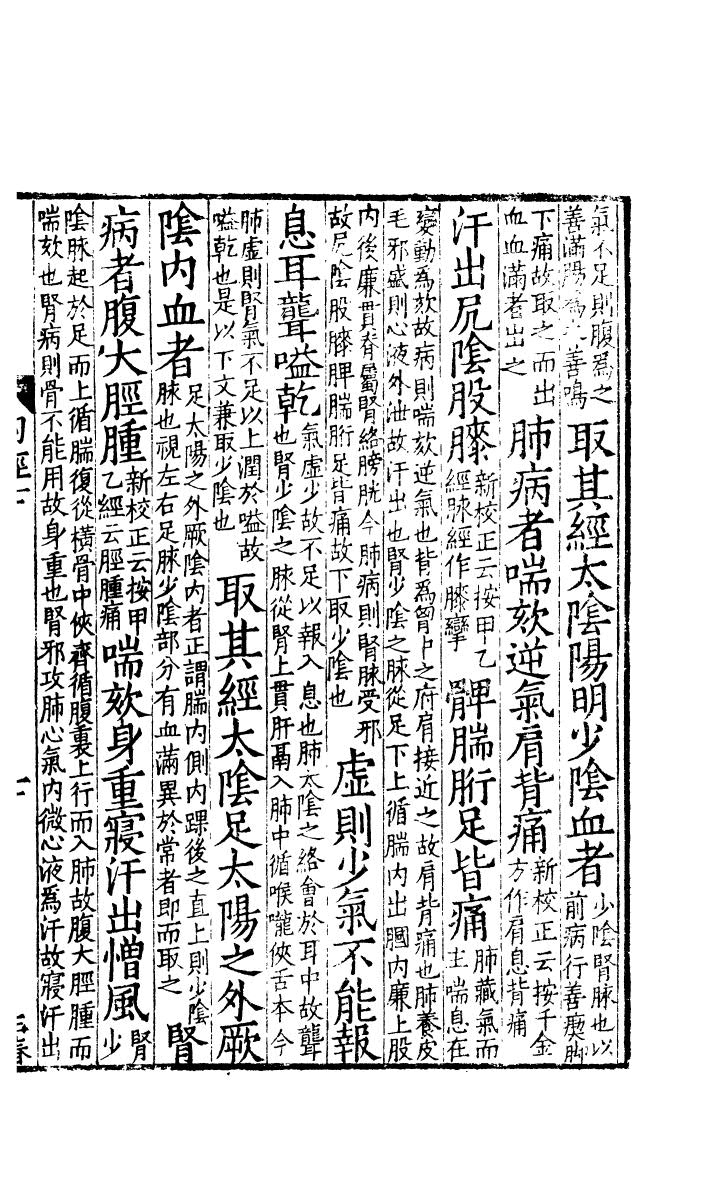 氣不足則腹為之
善滿腸為之善鳴
取其經太陰陽明少陰血者
少陰腎脉也以
前病行善瘈脚
下痛故取之而出
血血滿者出之
肺病者喘欬逆氣肩背痛
新校正云按千金
方作肩息背痛
汗出尻陰股膝
新校正云按甲乙
經脉經作膝攣
髀腨胻足皆痛
肺藏氣而
主喘息在
變動為欬故病則喘欬逆氣也背為胷中之府肩接近之故肩背痛也肺養皮
毛邪盛則心液外泄故汗出也腎少陰之脉從足下上循腨內出膕內廉上股
內後廉貫脊屬腎絡膀胱今肺病則腎脉受邪
故尻陰股膝髀腨胻足皆痛故下取少陰也
虛則少氣不能報
息耳聾嗌乾
氣虛少故不足以報入息也肺太陰之絡會於耳中故聾
也腎少陰之脉從腎上貫肝鬲入肺中循喉嚨俠舌本今
肺虛則腎氣不足以上潤於嗌故
嗌乾也是以下文兼取少陰也
取其經太陰足太陽之外厥
陰內血者
足太陽之外厥陰內者正謂腨內側內踝後之直上則少陰
脉也視左右足脉少陰部分有血滿異於常者即而取之
腎
病者腹大脛腫
新校正云按甲
乙經云脛腫痛
喘欬身重寢汗出憎風
腎
少
陰脉起於足而上循腨復從橫骨中俠齊循腹裏上行而入肺故腹大脛腫而
喘欬也腎病則骨不能用故身重也腎邪攻肺心氣內微心液為汗故寢汗出